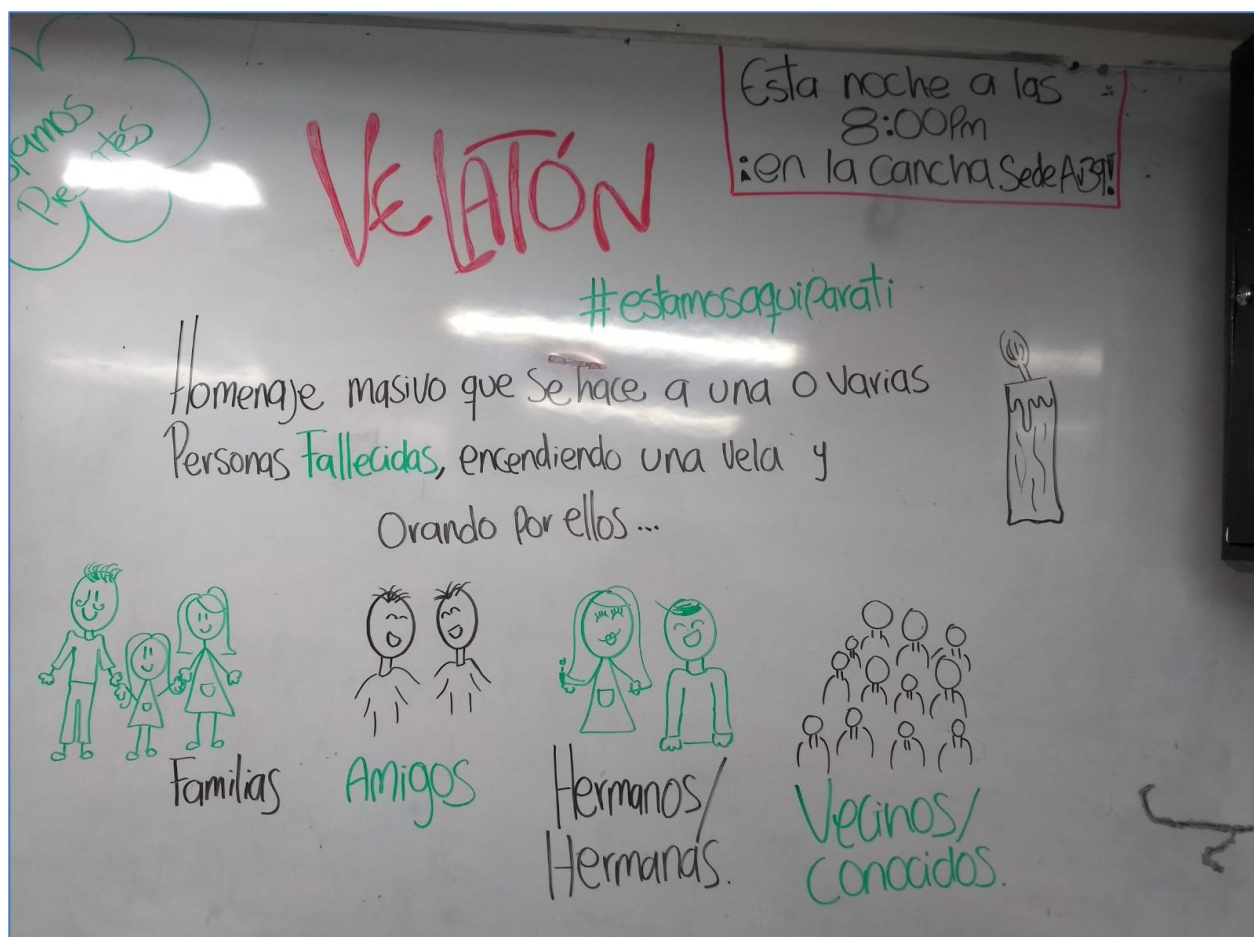 Esta noche a las
8:00Pm
¡en la cancha Sede Av39!
VELATÓN
#estamosaquiParati
Homenaje masivo que se hace a una o varias
Personas Fallecidas, encendiendo una vela y
Orando por ellos...
Familias
Amigos
Hermanos/
Hermanas.
Vecinos/
Conocidos.